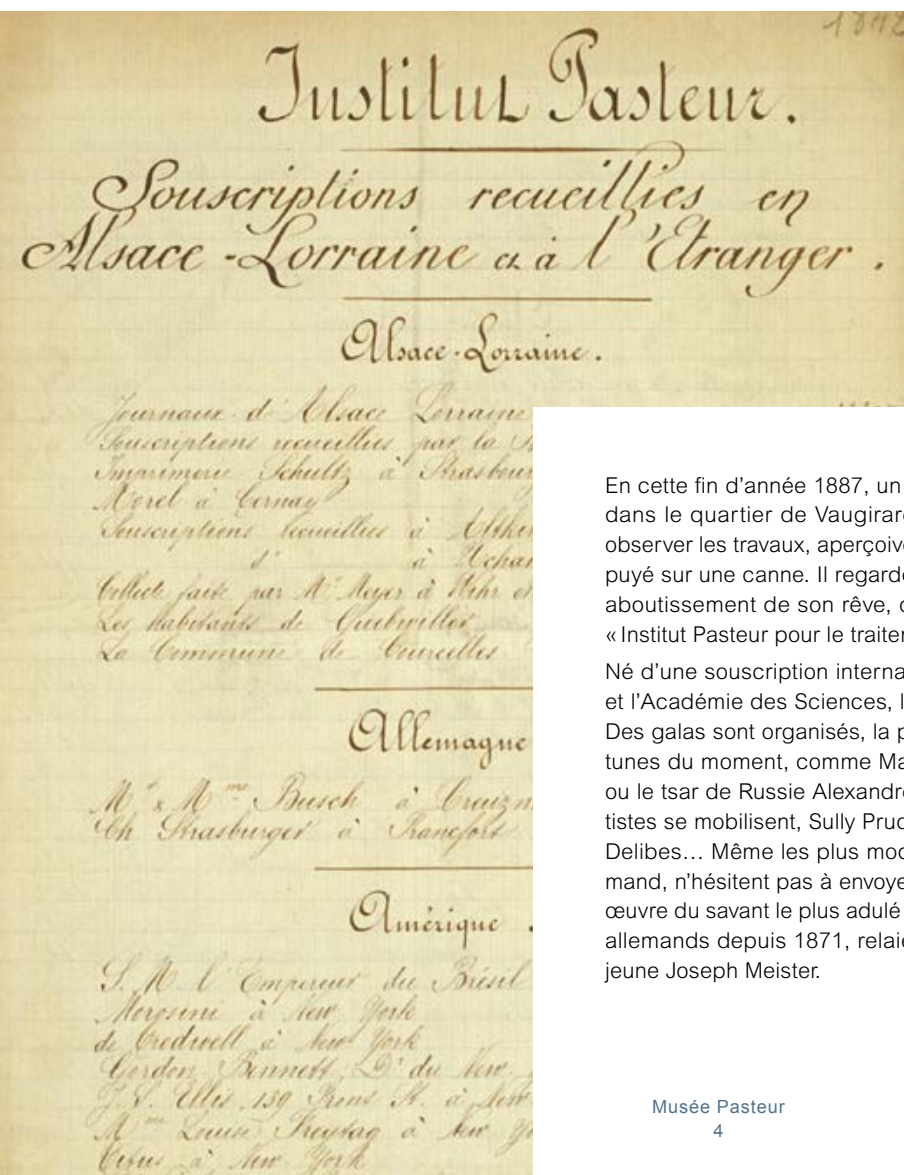 Institut Pasteur.
Souscriptions recueillies en
Alsace-Lorraine et à l'Etranger.
Alsace-Lorraine.
Journaux d'Alsace Lorraine
Souscriptions recueillies par la
Imprimerie Schultz à Strasbourg
Morel à Cernay
Souscriptions recueillies à
d° à
Collecte faite par Mr Meyer à Wihr et
Les habitants de Guebwiller
La Commune de Courcelles
Allemagne
Mr & Mme Busch à Creuzn
Ch Strasburger à Francfort
Amérique.
S. M. l'Empereur du Brésil
Morosini à New York
de Credwell à New York
Gordon Bennett, Dr du New
J. S. Ellis 159 à New
Mme Louise Freytag à New Yo
à New York
En cette fin d'année 1887, un
dans le quartier de Vaugirard
observer les travaux, aperçoive
puyé sur une canne. Il regarde
aboutissement de son rêve, c
« Institut Pasteur pour le traiter
Né d'une souscription interna
et l'Académie des Sciences, l
Des galas sont organisés, la p
tunes du moment, comme Ma
ou le tsar de Russie Alexandre
tistes se mobilisent, Sully Prud
Delibes… Même les plus mod
mand, n'hésitent pas à envoye
œuvre du savant le plus adulé
allemands depuis 1871, relaie
jeune Joseph Meister.
Musée Pasteur
4